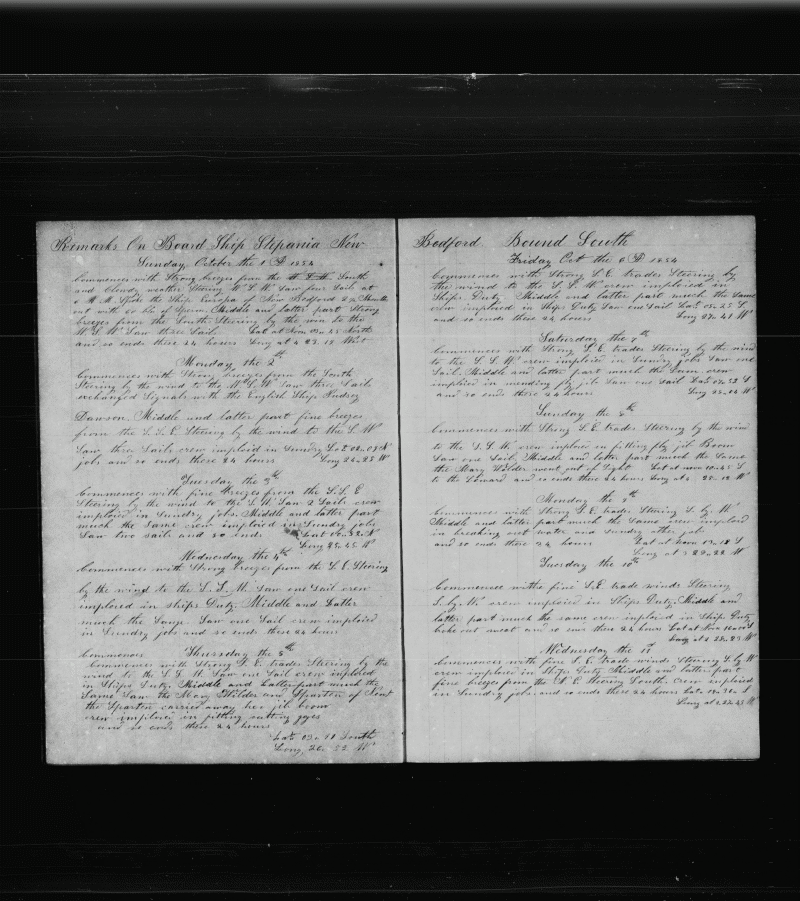 Remarks On Board Ship Stepania New
Sunday October the 1 D 1854
Commences with Strong breezes from the South
and Cloudy weather Stering W.S.W. Saw four Sail at
M Spoke the Ship Europa of New Bedford 2 Months
out with 60 bbl of Sperm. Middle and latter part Strong
breezes from the South Steering by the win to the
W.S.W. Saw three Sails. Lat at Noon 03.. 45 North
and so ends these 24 hours Long at 4 23.. 18 West
Monday the 2th
Commences with Strong breezes from the South
Steering by the wind to the W.S.W Saw three Sails
exchanged Signals with the English Ship
Dawson, Middle and latter part fine breezes
from the S.S.E Steering by the wind to the S.W
Saw three Sails crew imploid in Sundry
jobs and so ends these 24 hours Long 24.. 25 W
Tuesday the 3th
Commences with fine breezes from the S.S.E
Steering by the wind to the S.W Saw 2 Sails crew
imploid in Sundry jobs. Middle and latter part
much the Same crew imploid in Sundry jobs
Saw two sails and so ends Lat 00.. 32 N
Long 25.. 45 W
Wednesday the 4th
Commences with Strong breezes from the S.E Steering
by the wind to the S.S.W. Saw one Sail crew
imploied in Ships Duty. Middle and Latter
much the Same. Saw one Sail crew imploied
in Sundry jobs and so ends these 24 hours
Commences Thursday the 5th
Commences with Strong S.E. trades Steering by the
wind to the S.S.W. Saw one Sail crew imploied
in Ships Duty. Middle and Latter part much the
Same Saw the Mary Wilder and Sparten of
the Sparten carried away her jib boom
crew imploied in fitting cutting gages
and so ends these 24 hours
Lat 03.. 11 South
Long. 26.. 52 W
Bedford Bound South
Friday Oct the 6 D 1854
Commences with Strong S.E. trades Steering by
the wind to the S.S.W crew imploied in
Ships Duty Middle and latter part much the Same
crew imploied in Ships Duty Saw one Sail Lat 05.. 25 S
and so ends these 24 hours Long 27.. 41 W
Saturday the 7th
Commences with Strong S.E. trades Steering by the wind
to the S.S.W. crew imploied in Sundry jobs Saw one
Sail. Middle and latter part much the Sam crew
imploied in mending fly jib Saw one Sail Lat 07.. 52 S
and so ends these 24 hours Long 28.. 04 W
Sunday the 8th
Commences with Strong S.E. trades Steering by the wind
to the S.S.W. crew imploied in fitting fly jib Boom
Saw one Sail. Middle and latter part much the Same
the Mary Wilder went out of Sight Lat at noon 10.. 45 S
to the Leward and so ends these 24 hours Long at 4 28.. 12 W
Monday the 9th
Commences with Strong S.E. trades Steering S. by W.
Middle and latter part much the Same crew imploied
in breaking out water and Sundry other job
and so ends these 24 hours Lat at Noon 13.. 18 S
Long at 3 28.. 28 W
Tuesday the 10th
Commences with fine S.E. trade winds Steering
S. by W. crew imploied in Ships Duty. Middle and
latter part much the same crew imploied in Ships Duty
boke out meat and so ends these 24 hours Lat at Noon
Long at 4 28.. 23 W
Wednesday the 11
Commences with fine S.E. trade winds Steering S. by W
crew imploied in Ships Duty Middle and latter part
fine breezes from the S.E Steering South. Crew imploied
in Sundry jobs and so ends these 24 hours